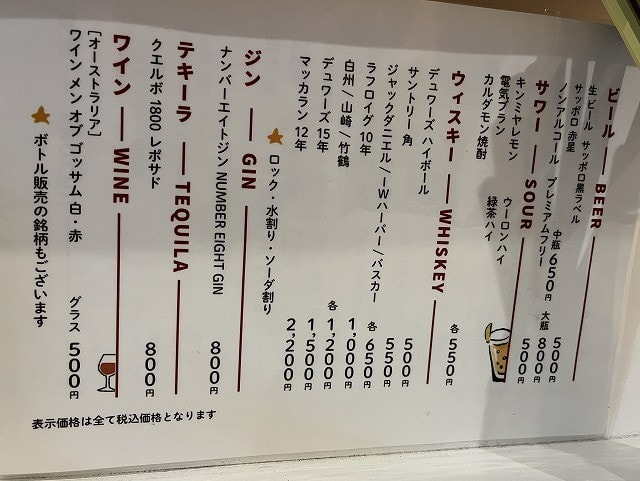 ビール — BEER
生ビール サッポロ黒ラベル 500円
サッポロ 赤星 中瓶 650円 大瓶 800円
ノンアルコール プレミアムフリー 500円
サワー — SOUR
キンミヤレモン ウーロンハイ
電気ブラン 緑茶ハイ
カルダモン焼酎
各 550円
ウィスキー — WHISKEY
デュワーズ ハイボール 500円
サントリー 角 550円
ジャックダニエル/I・Wハーパー/バスカー 各 650円
ラフロイグ 10年 1,000円
白州/山崎/竹鶴 各 1,200円
デュワーズ 15年 1,500円
マッカラン 12年 2,200円
★ ロック・水割り・ソーダ割り
ジン — GIN
ナンバーエイトジン NUMBER EIGHT GIN 800円
テキーラ — TEQUILA
クエルボ 1800 レポサド 800円
ワイン — WINE
[オーストラリア]
ワイン メン オブ ゴッサム 白・赤 グラス 500円
★ ボトル販売の銘柄もございます
表示価格は全て税込価格となります